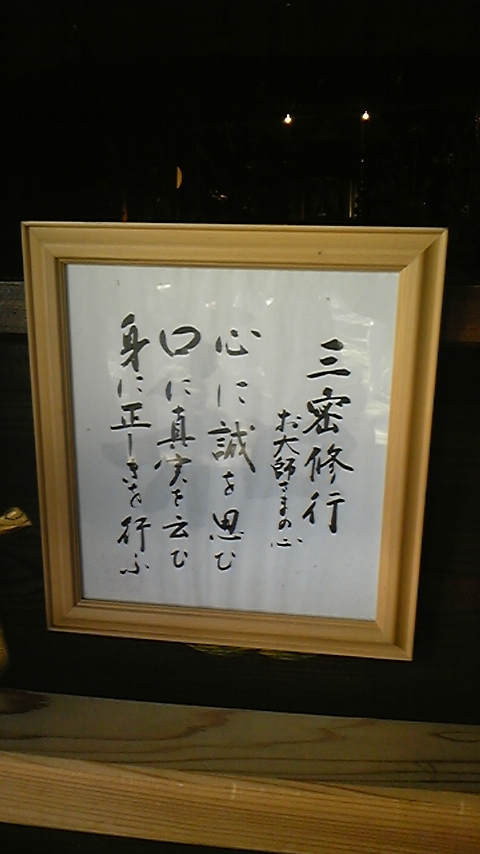 三密修行
お大師さまの心
心に誠を思む
口に真実を云む
身に正しきを行ふ